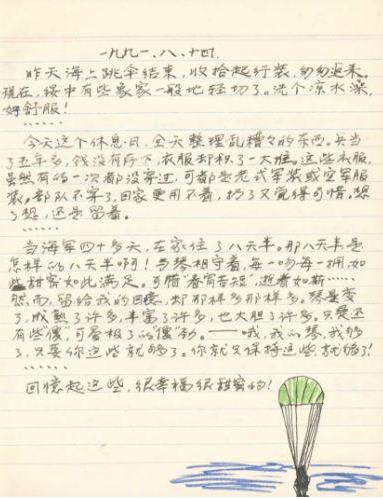 一九九一.八.十四.
昨天海上跳伞结束,收拾起行装,匆匆返来。
现在,终于有些象家一般地轻切了。洗个凉水澡,
好舒服!
……
今天这个休息日,全天整理乱糟々的东西。兵当
了五年多,钱没存下,衣服却积了一大堆。这些衣服,
虽然有的一次都没穿过,可都是老式军装或空军服
装。部队不穿了,回家更用不着,扔了又觉得可惜,想
了想,还是留着。
……
当海军四十多天,在家住了八天半。那八天半是
怎样的八天半啊!与琴相守着,每一吻每一拥如
此甜蜜如此满足。可脂"春宵苦短",逝者如斯……
然而,留给我的回忆,却那样多那样多。琴是变
了,成熟了许多,丰富了许多,也大胆了许多。只是还
有些"傻",可爱极了的"傻"劲。——哦,我的琴,我够
了,只要你这些就够了。你就只保持这些,就够了!
……
回忆起这些,很幸福很甜蜜的!